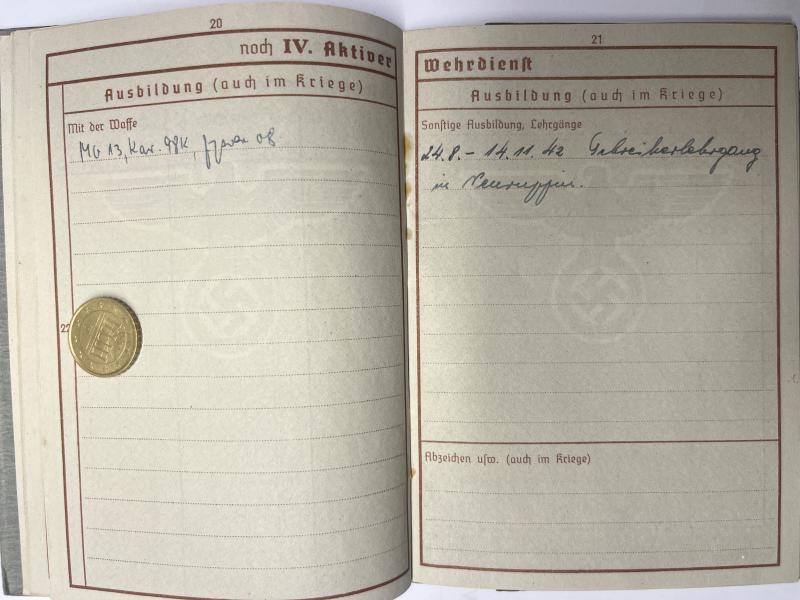 20
noch IV. Aktiver
Ausbildung (auch im Kriege)
Mit der Waffe
MG 13, Kar. 98K, 08
22
21
Wehrdienst
Ausbildung (auch im Kriege)
Sonstige Ausbildung, Lehrgänge
24.8. - 14.11.42 Schreiberlehrgang
in Neuruppin.
Abzeichen usw. (auch im Kriege)